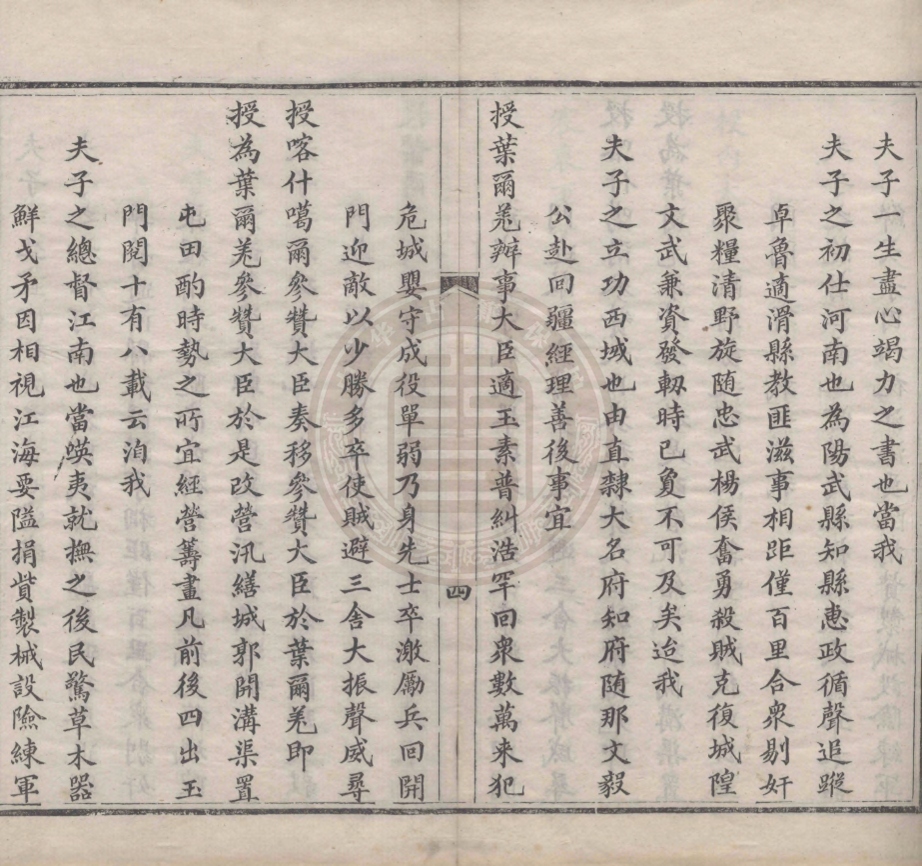 夫子一生盡心竭力之書也當我
夫子之初仕河南也為陽武縣知縣惠政循聲追蹤
卓魯適滑縣教匪滋事相距僅百里合衆剔奸
聚糧清野旋随忠武楊侯奮勇殺賊克復城隍
文武兼資發軔時已敻不可及矣迨我
夫子之立功西域也由直隸大名府知府随那文毅
公赴回疆經理善後事宜
授葉爾羌辦事大臣適玉素普糾浩罕回衆數萬来犯
四
危城嬰守成役單弱乃身先士卒激勵兵回開
門迎敵以少勝多卒使賊避三舍大振聲威尋
授喀什噶爾參贊大臣奏移參贊大臣於葉爾羌即
授為葉爾羌參贊大臣於是改營汛繕城郭開溝渠置
屯田酌時勢之所宜經營籌畫凡前後四出玉
門閱十有八載云洎我
夫子之總督江南也當暎夷就撫之後民驚草木器
鮮戈矛因相視江海要隘捐貲製械設險練軍